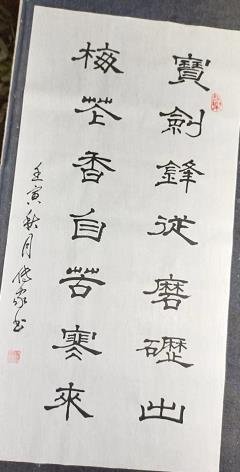 寶劍鋒從磨礪出
梅花香自苦寒來
壬寅秋月傳家书